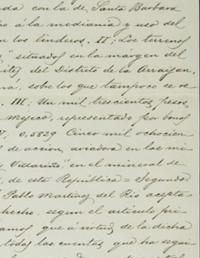 da con la de, Santa Barbara
á la medianía y uso del
los linderos. II. Los terrenos
" situados en la márgen del
del Distrito de la Arraijan,
sobre los que tampoco se
III. Un mil trescientos pesos
representado por bonos
0,5829 Cinco mil ochocien
de acción, aviadora en las mi
Villariño" en el mineral de
de esta República = Segundo
Pablo Martinez del Rio acepta
hecho, segun el artículo pri
amos que á virtud de la dicha
todas las cuentas que ha segui